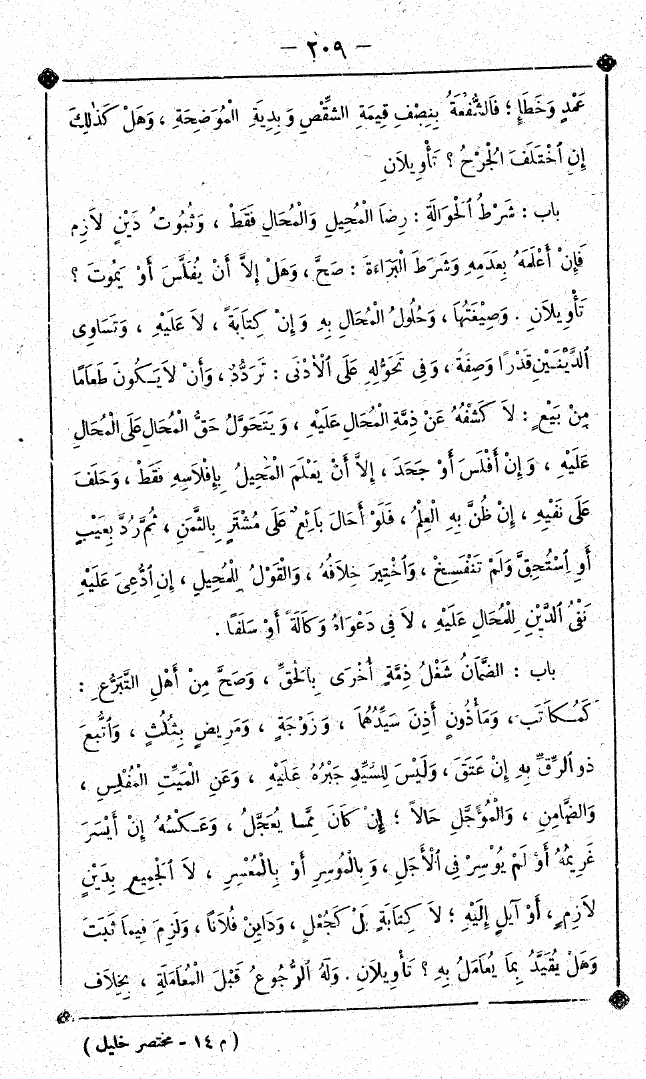 — ٢٠٩ —
عَمْدٍ وَخَطَإٍ ؛ فَالشُّفْعَةُ بِنِصْفِ قِيمَةِ الشِّقْصِ وَبِدِيَةِ الْمُوَضِحَةِ ، وَهَلْ كَذٰلِكَ
إِنِ اخْتَلَفَ الْجُرْحُ ؟ تَأْوِيلاَنِ
باب : شَرْطُ الْحَوَالَةِ : رِضَا الْمُحِيلِ وَالْمُحَالِ فَقَطْ ، وَثُبُوتُ دَيْنٍ لاَزِمٍ
فَإِنْ أَعْلَمَهُ بِعَدَمِهِ وَشَرَطَ الْبَرَاءَةَ : صَحَّ ، وَهَلْ إِلاَّ أَنْ يُفَلَّسَ أَوْ يَمُوتَ ؟
تَأْوِيلاَنِ . وَصِيغَتُهَا ، وَحُلُولُ الْمُحَالِ بِهِ وَإِنْ كِتَابَةً ، لاَ عَلَيْهِ ، وَتَسَاوِى
الدَّيْنَيْنِ قَدْرًا وَصِفَةً ، وَفِى تَحَوُّلِهِ عَلَى الْأَدْنَى : تَرَدُّدٌ ، وَأَنْ لاَ يَكُونَ طَعَامًا
مِنْ بَيْعٍ : لاَ كَشْفُهُ عَنْ ذِمَّةِ الْمُحَالِ عَلَيْهِ ، وَيَتَحَوَّلُ حَقُّ الْمُحَالِ عَلَى الْمُحَالِ
عَلَيْهِ ، وَإِنْ أَفْلَسَ أَوْ جَحَدَ ، إِلاَّ أَنْ يَعْلَمَ الْمُحِيلُ بِإِفْلاَسِهِ فَقَطْ ، وَحَلَفَ
عَلَى نَفْيِهِ ، إِنْ ظُنَّ بِهِ الْعِلْمُ ، فَلَوْ أَحَالَ بَائِعٌ عَلَى مُشْتَرٍ بِالثَّمَنِ ، ثُمَّ رُدَّ بِعَيْبٍ
أَوِ اسْتُحِقَّ وَلَمْ تَنْفَسِخْ ، وَاخْتِيرَ خِلاَفُهُ ، وَالْقَوْلُ لِلْمُحِيلِ ، إِنِ ادُّعِىَ عَلَيْهِ
نَفْىُ الدَّيْنِ لِلْمُحَالِ عَلَيْهِ ، لاَ فِى دَعْوَاهُ وَكَالَةً أَوْ سَلَفًا .
باب : الضَّمَانُ شَغْلُ ذِمَّةٍ أُخْرَى بِالْحَقِّ ، وَصَحَّ مِنْ أَهْلِ التَّبَرُّعِ :
كَمُكَاتَبٍ ، وَمَأْذُونٍ أَذِنَ سَيِّدُهُمَا ، وَزَوْجَةٍ ، وَمَرِيضٍ بِثُلُثٍ ، وَاتُّبِعَ
ذو الرِّقِّ بِهِ إِنْ عَتَقَ ، وَلَيْسَ لِلسَّيِّدِ جَبْرُهُ عَلَيْهِ ، وَعَنِ الْمَيِّتِ الْمُفْلِسِ ،
وَالضَّامِنِ ، وَالْمُؤَجَّلِ حَالاًّ ؛ إِنْ كَانَ مِمَّا يُعَجَّلُ ، وَعَكْسُهُ إِنْ أَيْسَرَ
غَرِيمُهُ أَوْ لَمْ يُوسِرْ فِى الْأَجَلِ ، وَبِالْمُوسِرِ أَوْ بِالْمُعْسِرِ ، لاَ الْجَمِيعِ بِدَيْنٍ
لاَزِمٍ ، أَوْ آيِلٍ إِلَيْهِ ؛ لاَ كِتَابَةٍ بَلْ كَجُعْلٍ ، وَدَايِنْ فُلاَنًا ، وَلَزِمَ فِيمَا ثَبَتَ
وَهَلْ يُقَيَّدُ بِمَا يُعَامَلُ بِهِ ؟ تَأْوِيلاَنِ . وَلَهُ الرُّجُوعُ قَبْلَ الْمُعَامَلَةِ ، بِخِلاَفِ
( م ١٤ - مختصر خليل )